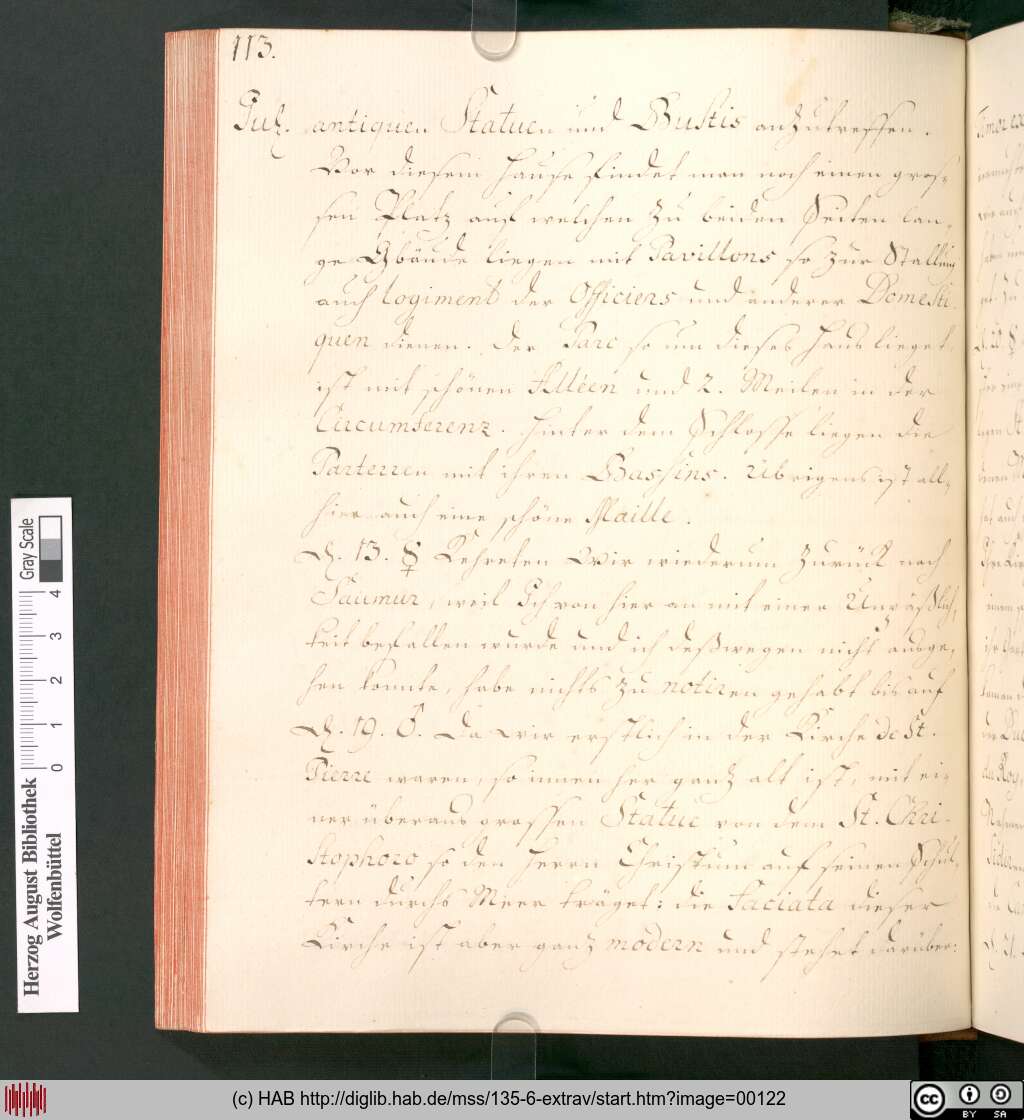 113.
Jul. antiquen Statuen und Bustis anzutreffen.
Vor diesem Hause findet man noch einen gros-
sen Platz auf welchen zu beiden Seiten lan-
ge Gbäude liegen mit Pavillons so zur Stallung
auch logiment der Officiers und anderer Domesti-
quen dienen. Der Parc so um dieses Haus lieget,
ist mit schönen Alléen und 2. Meilen in der
Circumferenz. Hinter dem Schlosse liegen die
Parterren mit ihren Bassins. Übrigens ist all-
hier auch eine schöne Maille.
D. 13. ☿ Kehreten Wir wiederum zurück nach
Saumur, weil Ich von hier an mit einer Unpäßlich-
keit befallen wurde und ich deßwegen nicht ausge-
hen konnte, habe nichts zu notiren gehabt bis auf
D. 19. ♂. Da wir erstlich in der Kirche de St.
Pierre waren, so innen her gantz alt ist, mit ei-
ner überaus grossen Statue von dem St. Chri-
stophoro so den Herrn Christum auf seinen Schul-
tern durchs Meer träget: die Faciata dieser
Kirche ist aber gantz modern und stehet darüber:
Gray Scale
0 1 2 3 4
Herzog August Bibliothek
Wolfenbüttel
(c) HAB http://diglib.hab.de/mss/135-6-extrav/start.htm?image=00122
cc BY SA